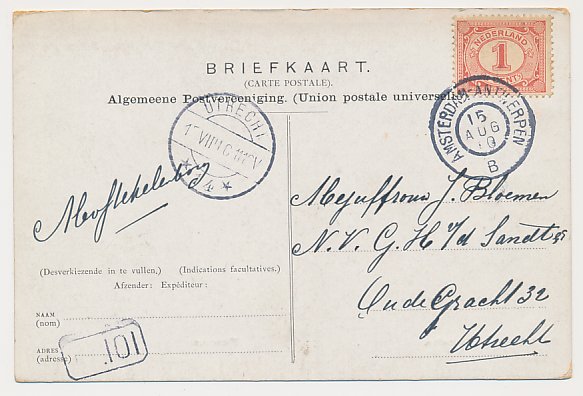 NEDERLAND
1
CENT
BRIEFKAART.
(CARTE POSTALE).
Algemeene Postvereeniging. (Union postale universelle)
UTRECHT
4
AMSTERDAM-ANTWERPEN
15
AUG
10
B
Mejuffrouw J. Bloemen
N. V. G. H v/d Sandt
Oude Gracht 32
Utrecht
(Desverkiezende in te vullen.) (Indications facultatives.)
Afzender: Expéditeur:
NAAM
(nom)
ADRES
(adresse)
101.